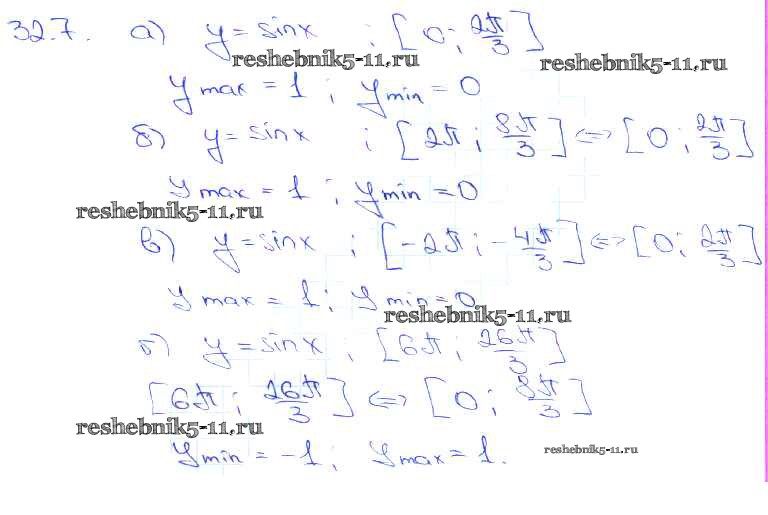 32.7. а) y = sinx ; [0; 2π/3]
reshebnik5-11.ru reshebnik5-11.ru
y max = 1 ; y min = 0
б) y = sinx ; [2π ; 8π/3] <=> [0 ; 2π/3]
y max = 1 ; y min = 0
reshebnik5-11.ru
в) y = sinx ; [-2π ; -4π/3] <=> [0 ; 2π/3]
y max = 1 ; y min = 0
reshebnik5-11.ru
г) y = sinx ; [6π ; 26π/3]
[6π ; 26π/3] <=> [0 ; 8π/3]
reshebnik5-11.ru
y min = -1 ; y max = 1.
reshebnik5-11.ru